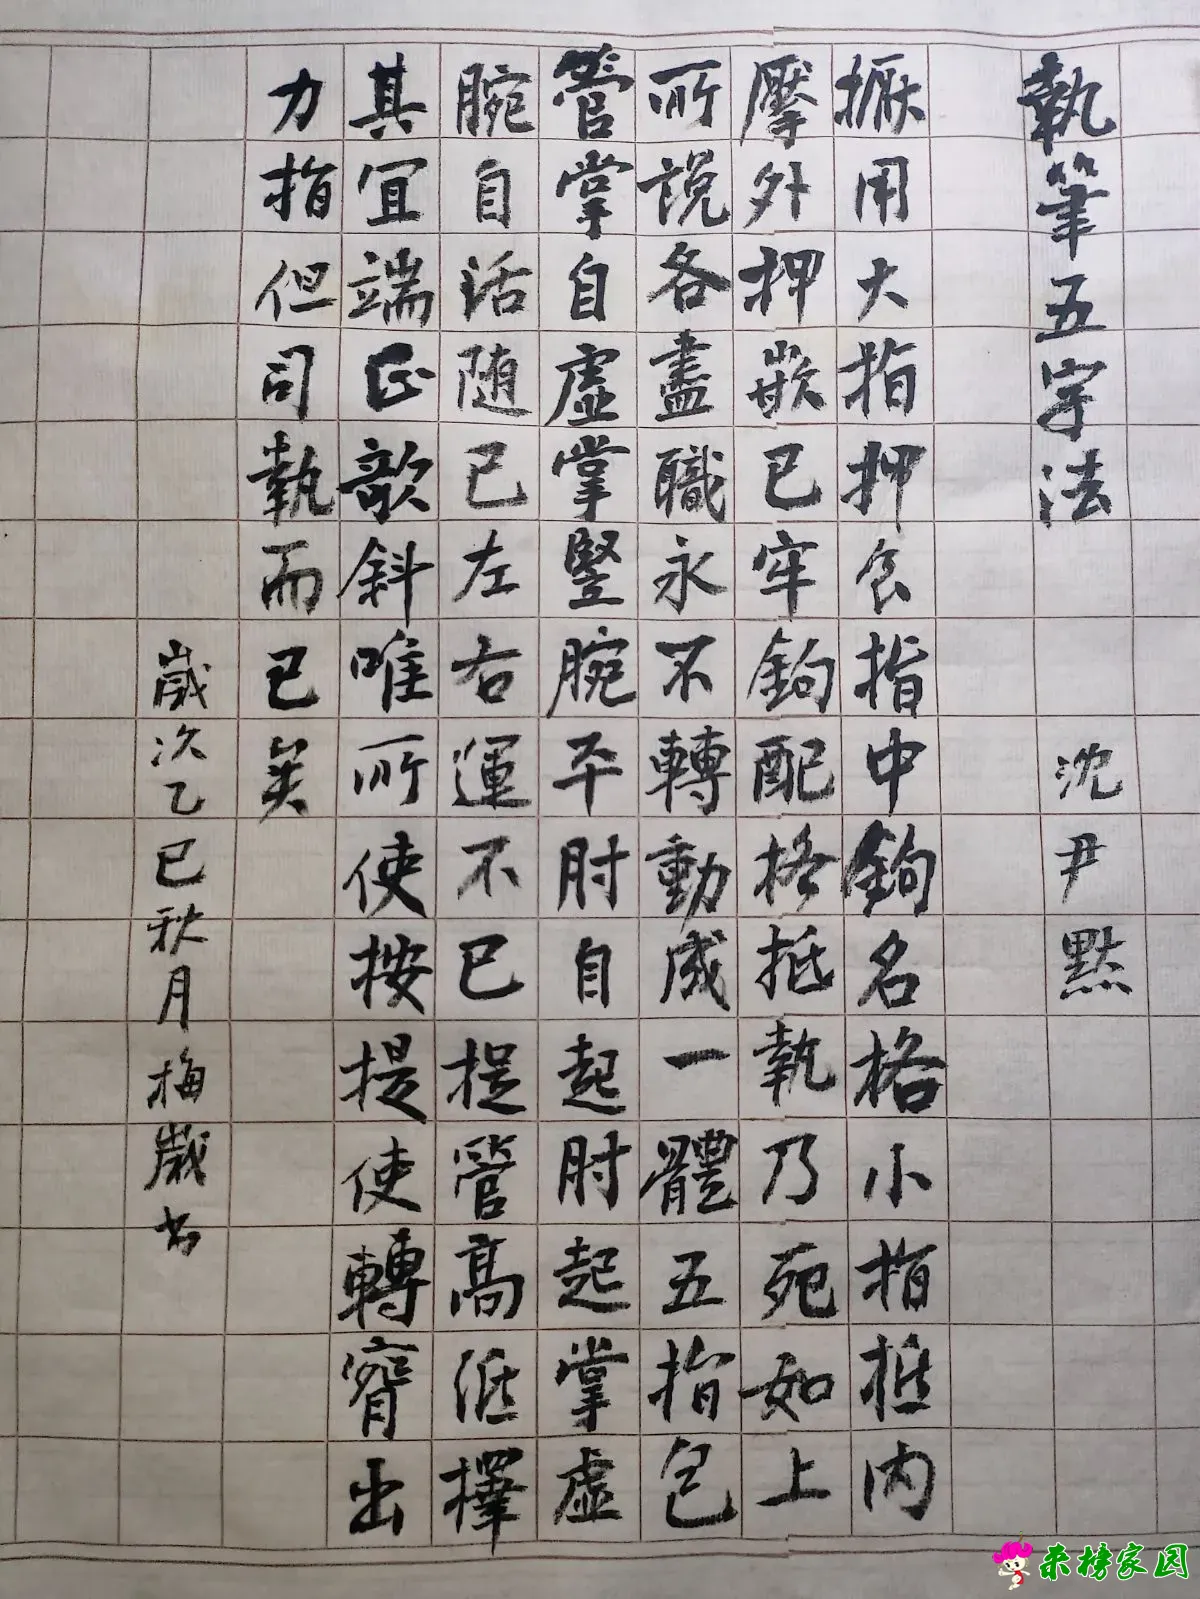 執筆五字法
沈尹默
擫用大指押食指中鉤名格小指抵内
擪外押嵌已牢鉤配格抵執乃死如上
所說各盡職永不轉動成一體五指包
管掌自虛掌豎腕平肘自起肘起掌虛
腕自活随已左右運不已提管高低擇
其宜端正欹斜唯所使按提使轉腎出
力指但司執而已矣
歲次乙巳秋月梅嵗书
来榜家园